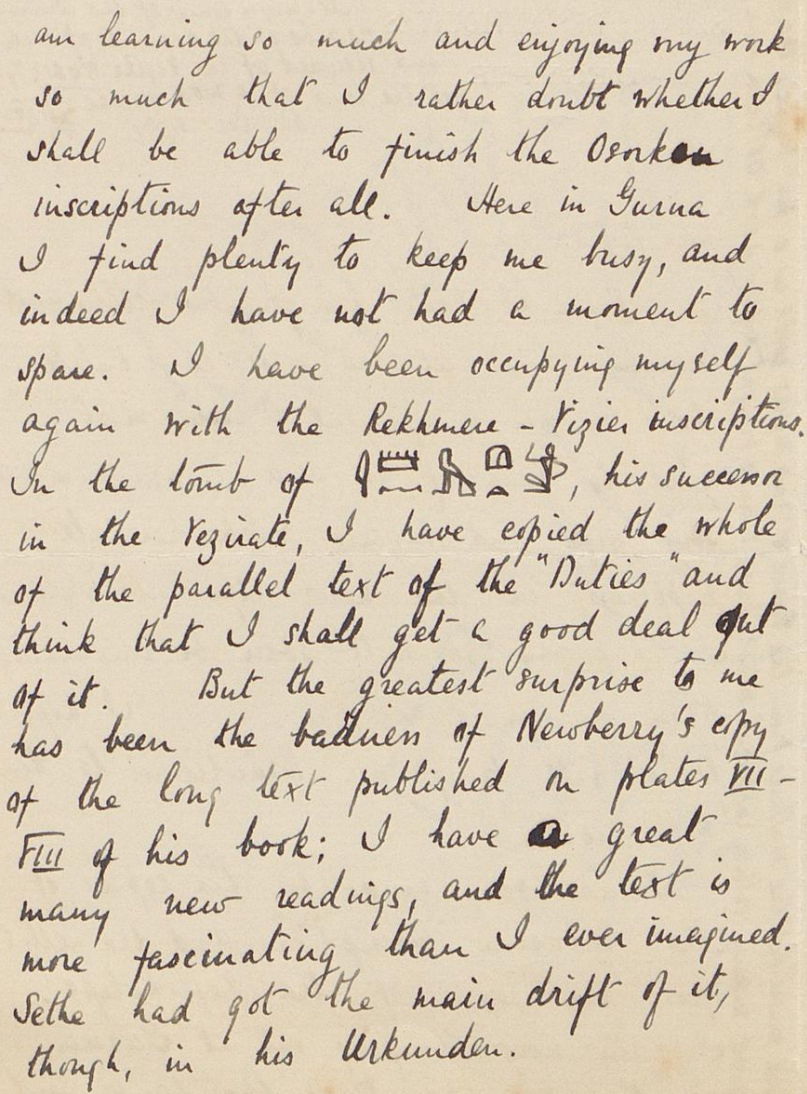 am learning so much and enjoying my work
so much that I rather doubt whether I
shall be able to finish the Osorkon
inscriptions after all. Here in Gurna
I find plenty to keep me busy, and
indeed I have not had a moment to
spare. I have been occupying myself
again with the Rekhmere - Vizier inscriptions.
In the tomb of 𓇋𓏠𓈖, his successor
in the Vezirate, I have copied the whole
of the parallel text of the "Duties" and
think that I shall get a good deal out
of it. But the greatest surprise to me
has been the badness of Newberry's copy
of the long text published on plates VII -
VIII of his book; I have a great
many new readings, and the text is
more fascinating than I ever imagined.
Sethe had got the main drift of it,
though, in his Urkunden.